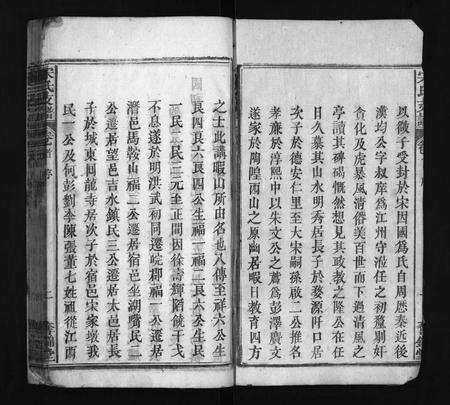 以微子受封於宋因國爲氏自周歷秦近後
漢均公字叔庠爲江州守涖任之初釐剔奸
貪化及虎暴風淸俗美百世而下過淸風之
亭讀其碑碣慨然想見其政教之隆公在任
日久葉其山水明秀居長子於婺源阡口居
次子於德安仁里至大宋嗣孫啟二公推名
孝廉於淳熙中以朱文公之薦爲彭澤廣文
遂家於陶隍西山之原幽居暇日教育四方
之士此講暇山所由名也八傳至祥六公生
艮四艮六艮四公生福一福二艮六公生民
一民二民三元至正間因徐壽輝陷饒干戈
不息遂於明洪武初同遷皖郡福一公遷居
潛邑馬鞍山福二公遷居宿邑坐湖嘴民二
公遷居望邑吉水鎭民三公遷居太邑居長
子於城東回龍寺居次子於宿邑宋家墩我
民一公及何彭劉李陳張董七姓祖從江西
宋氏支譜
卷首 序